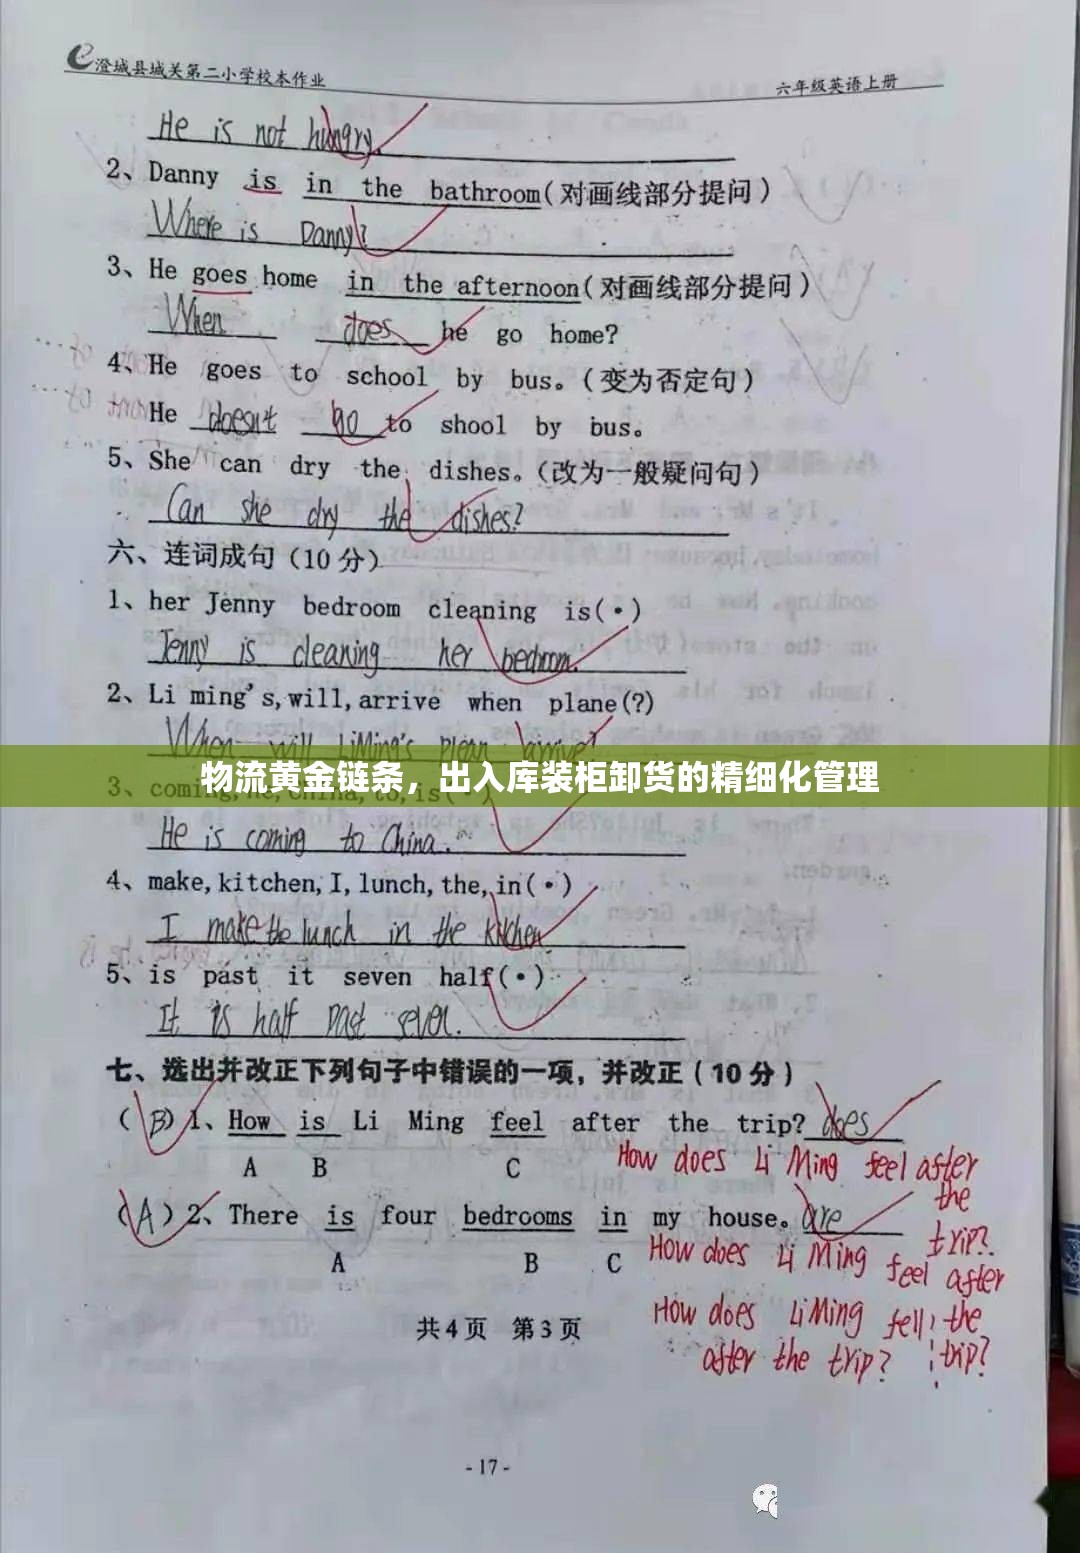 澄城县城关第二小学校本作业
六年级英语上册
He is not hungry.
2、Danny is in the bathroom(对画线部分提问)
Where is Danny?
3、He goes home in the afternoon(对画线部分提问)
When does he go home?
4、He goes to school by bus。(变为否定句)
He doesn't go to shool by bus。
5、She can dry the dishes。(改为一般疑问句)
Can she dry the dishes?
六、连词成句(10分)
1、her Jenny bedroom cleaning is(·)
Jenny is cleaning her bedroom.
2、Li ming's,will,arrive when plane(?)
When will LiMing's plean arrive?
物流黄金链条，出入库装柜卸货的精细化管理
3、coming,he,China,to,is(·)
He is coming to China.
4、make,kitchen,I,lunch,the,in(·)
I make the lunch in the kitchen
5、is past it seven half(·)
It is half past seven.
七、选出并改正下列句子中错误的一项，并改正(10分)
(B)1、How is Li Ming feel after the trip? does
A B C
How does Li Ming feel after the trip?
(A)2、There is four bedrooms in my house。are
A B C
How does Li Ming feel after the trip?
How does LiMing fell after the trip?
共4页 第3页
-17-